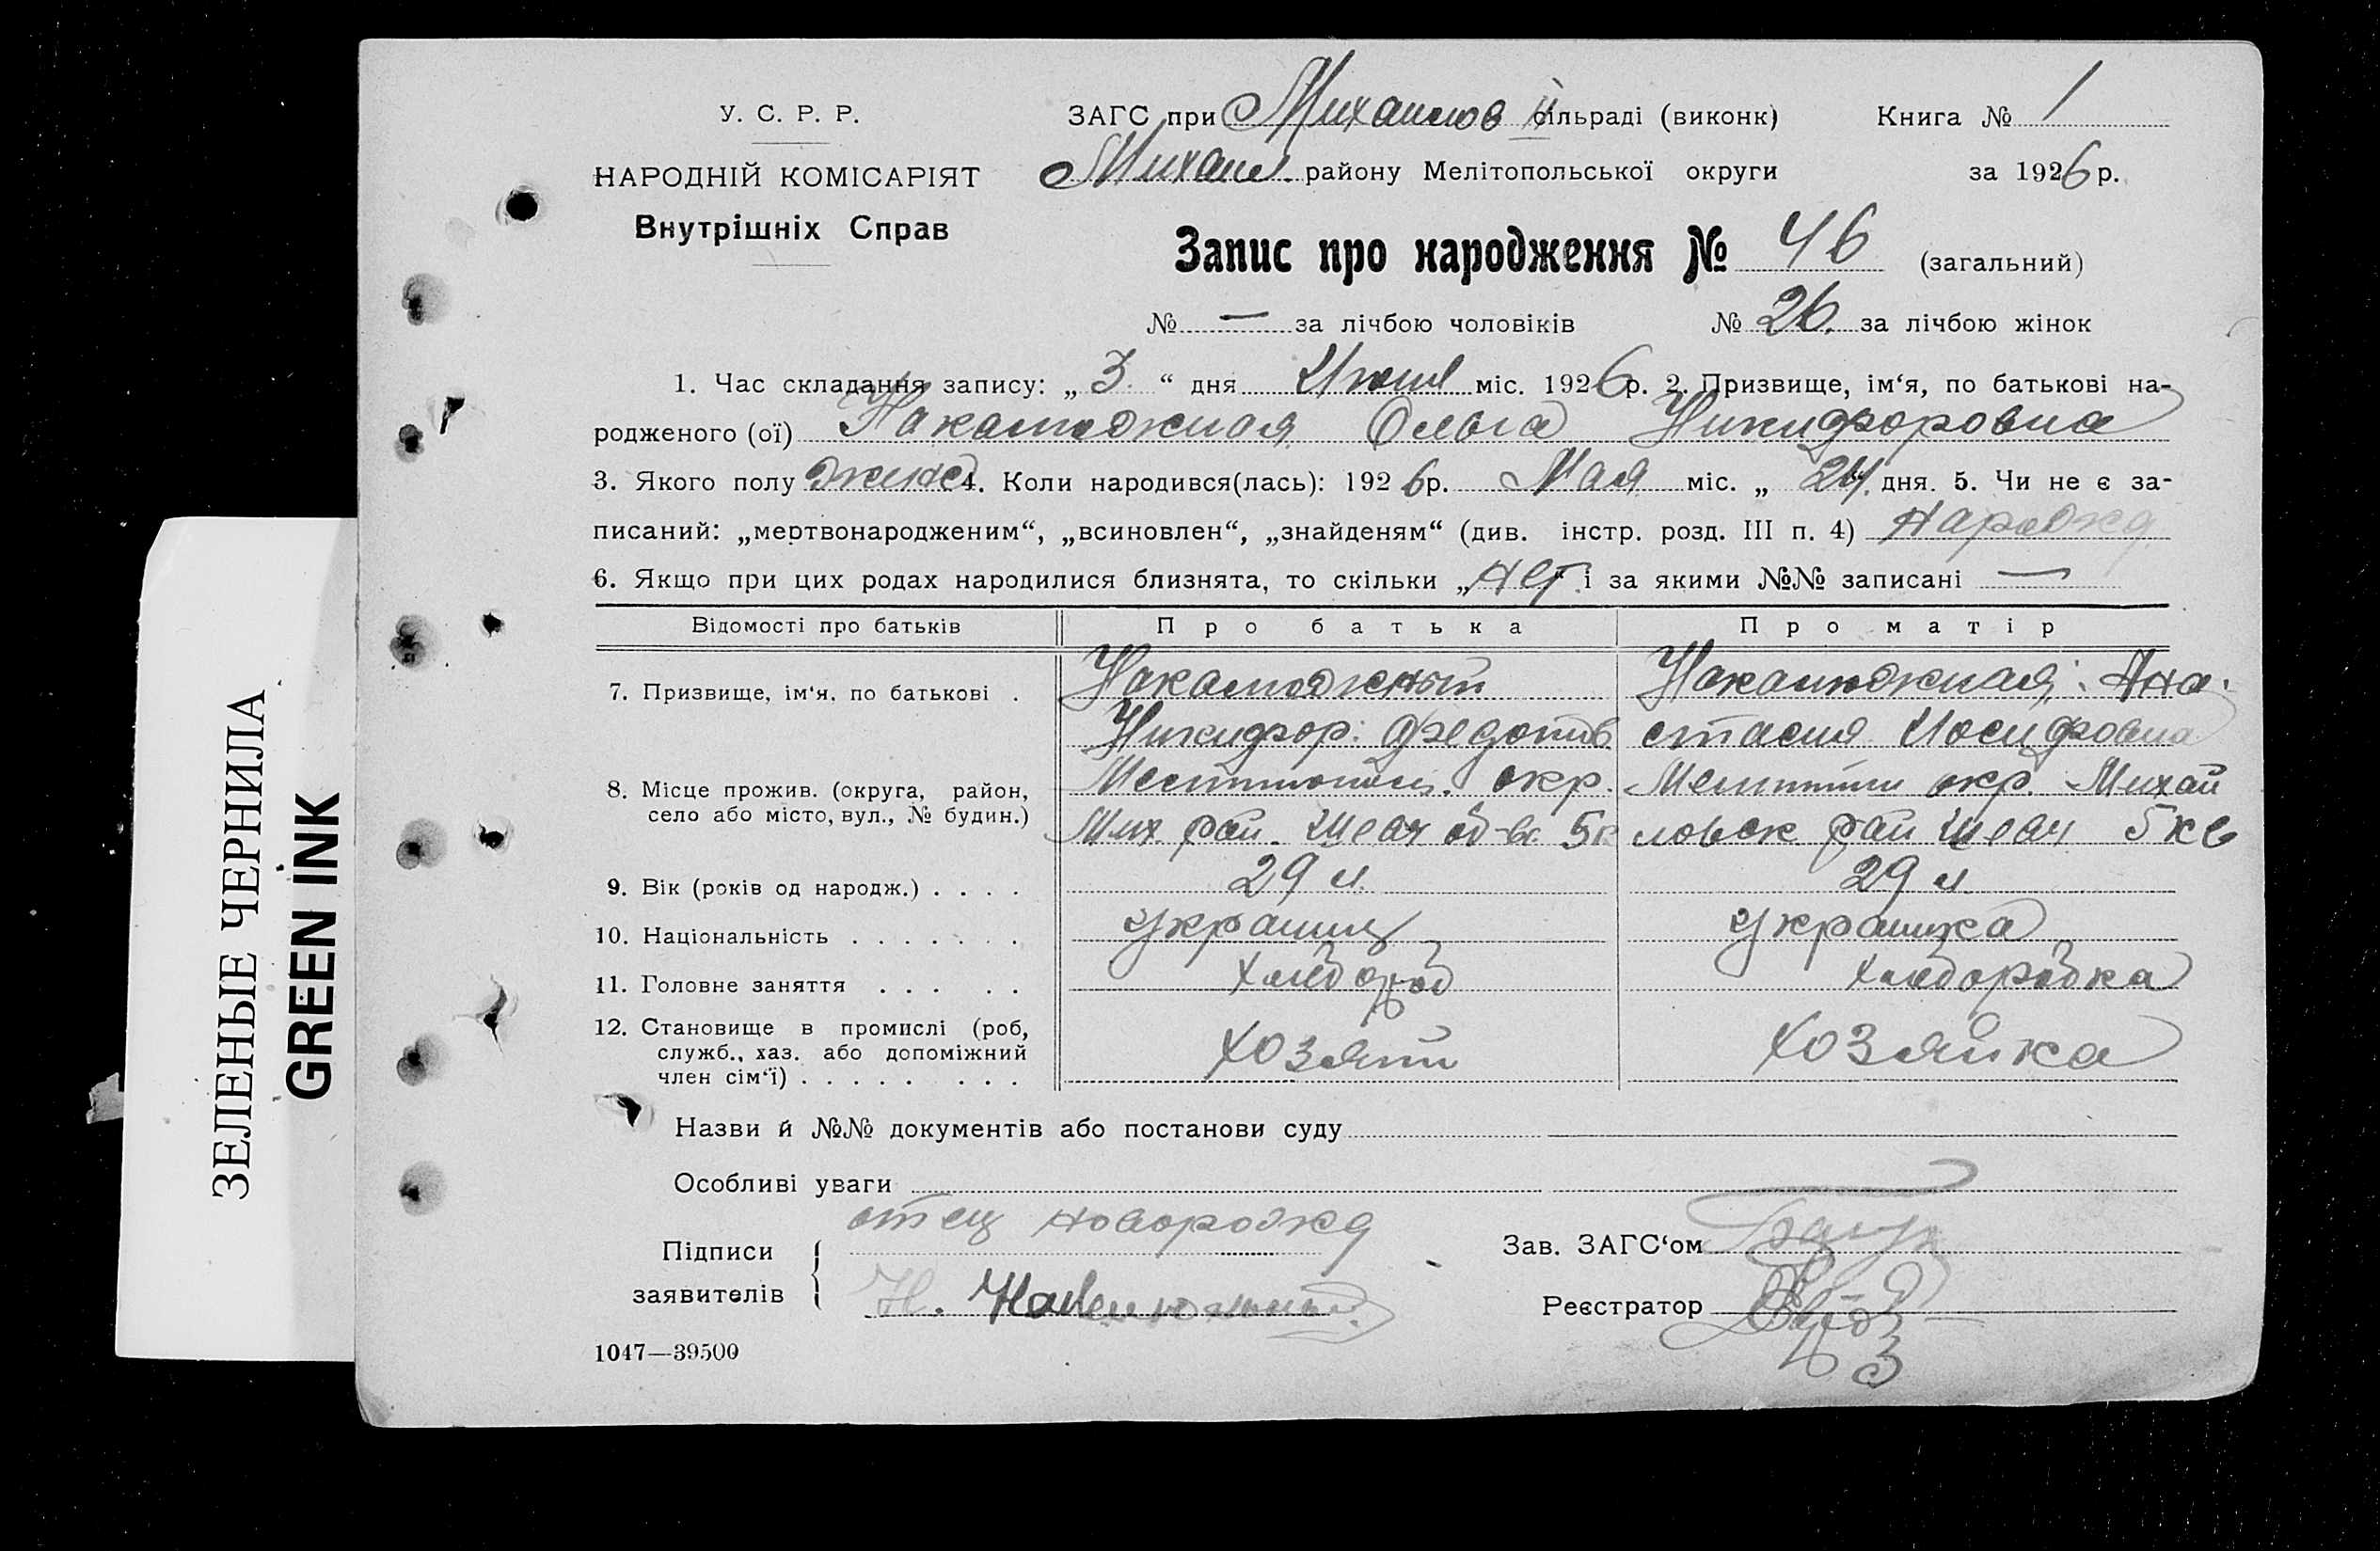 ЗЕЛЕНЫЕ ЧЕРНИЛА
GREEN INK
У. С. Р. Р.
НАРОДНІЙ КОМІСАРІЯТ
Внутрішніх Справ
ЗАГС при Михайлов сільраді (виконк) Книга № 1
Михайл. району Мелітопольської округи за 1926 р.
Запис про народження № 46 (загальний)
№ — за лічбою чоловіків № 26. за лічбою жінок
1. Час складання запису: „ 3 “ дня міс. 1926 р. 2. Призвище, ім‘я, по батькові на-
родженого (ої) Ольга Никифоровна
3. Якого полу женс 4. Коли народився(лась): 1926 р. Мая міс. „ 24. дня. 5. Чи не є за-
писаний: „мертвонародженим“, „всиновлен“, „знайденям“ (див. інстр. розд. III п. 4) нарожд.
6. Якщо при цих родах народилися близнята, то скільки „ нет і за якими №№ записані —
Відомості про батьків Про батька Про матір
7. Призвище, ім‘я, по батькові . Ана-
Никифор: Федотов стасия Иосифовна
8. Місце прожив. (округа, район, окр. окр. Михай
село або місто, вул., № будин.) Мих. рай. ловск рай 5 кв
9. Вік (років од народж.) . . . . 29 л. 29 л
10. Національність . . . . . . . украинец украинка
11. Головне заняття . . . . . хлебороб хлеборобка
12. Становище в промислі (роб,
служб., хаз. або допоміжний хозяин хозяйка
член сім‘ї) . . . . . . . .
Назви й №№ документів або постанови суду
Особливі уваги
отец новорожд
Підписи Зав. ЗАГС‘ом
заявителів Н. Реєстратор
1047—39500